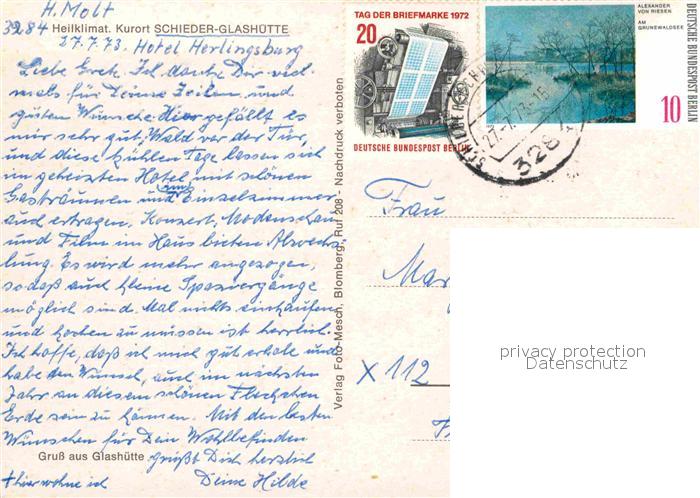 H. Molt
3284 Heilklimat. Kurort SCHIEDER-GLASHÜTTE
27.7.73. Hotel Herlingsburg
Liebe Grete. Ich danke Dir viel
mals für Deine Zeilen und
guten Wünsche. Hier gefällt es
mir sehr gut. Wald vor der Tür,
und diese kühlen Tage lassen sich
im geheizten Hotel mit schönen
Gasträumen und Einzelzimmer
auch ertragen. Konzert, Modenschau
und Film im Haus bieten Abwechs
lung. Es wird mehr angezogen,
sodaß auch kleine Spaziergänge
möglich sind. Mal nichts einkaufen
und kochen zu müssen ist herrlich.
Ich hoffe, daß ich mich gut erhole und
habe den Wunsch, auch im nächsten
Jahr an diesem schönen Fleckchen
Erde sein zu können. Mit den besten
Wünschen für Dein Wohlbefinden
Gruß aus Glashütte grüßt Dich herzlich
+ hier wohne ich Deine Hilde
Verlag Foto-Mesch, Blomberg, Ruf 208 - Nachdruck verboten
TAG DER BRIEFMARKE 1972
20
DEUTSCHE BUNDESPOST BERLIN
ALEXANDER
VON RIESEN
AM
GRUNEWALDSEE
DEUTSCHE BUNDESPOST BERLIN
10
3284
Frau
Mar
X 112
privacy protection
Datenschutz